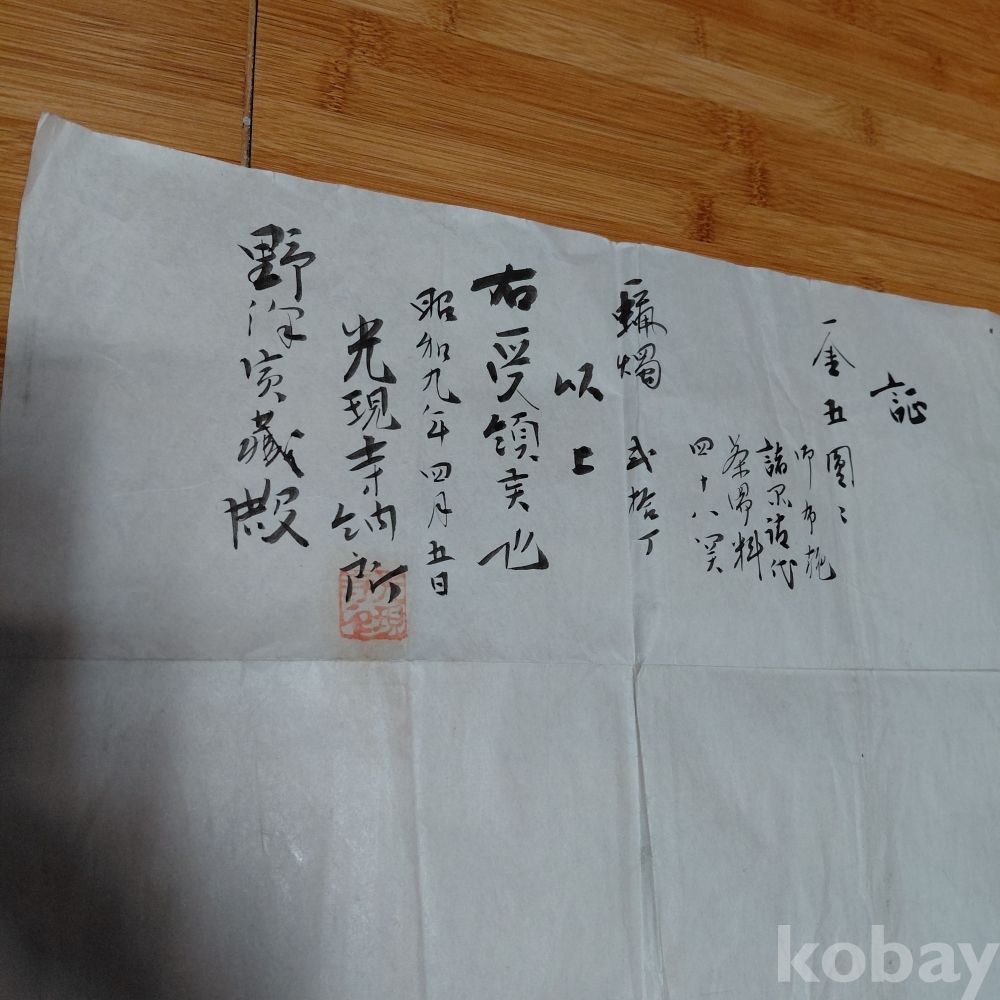 証
一金五圓〻
御布施
諸下請代
茶湯料
四十八奌
一蝋燭 弐拾丁
以上
右受領候也
昭和九年四月五日
光現寺納所
野澤寅蔵殿
kobay